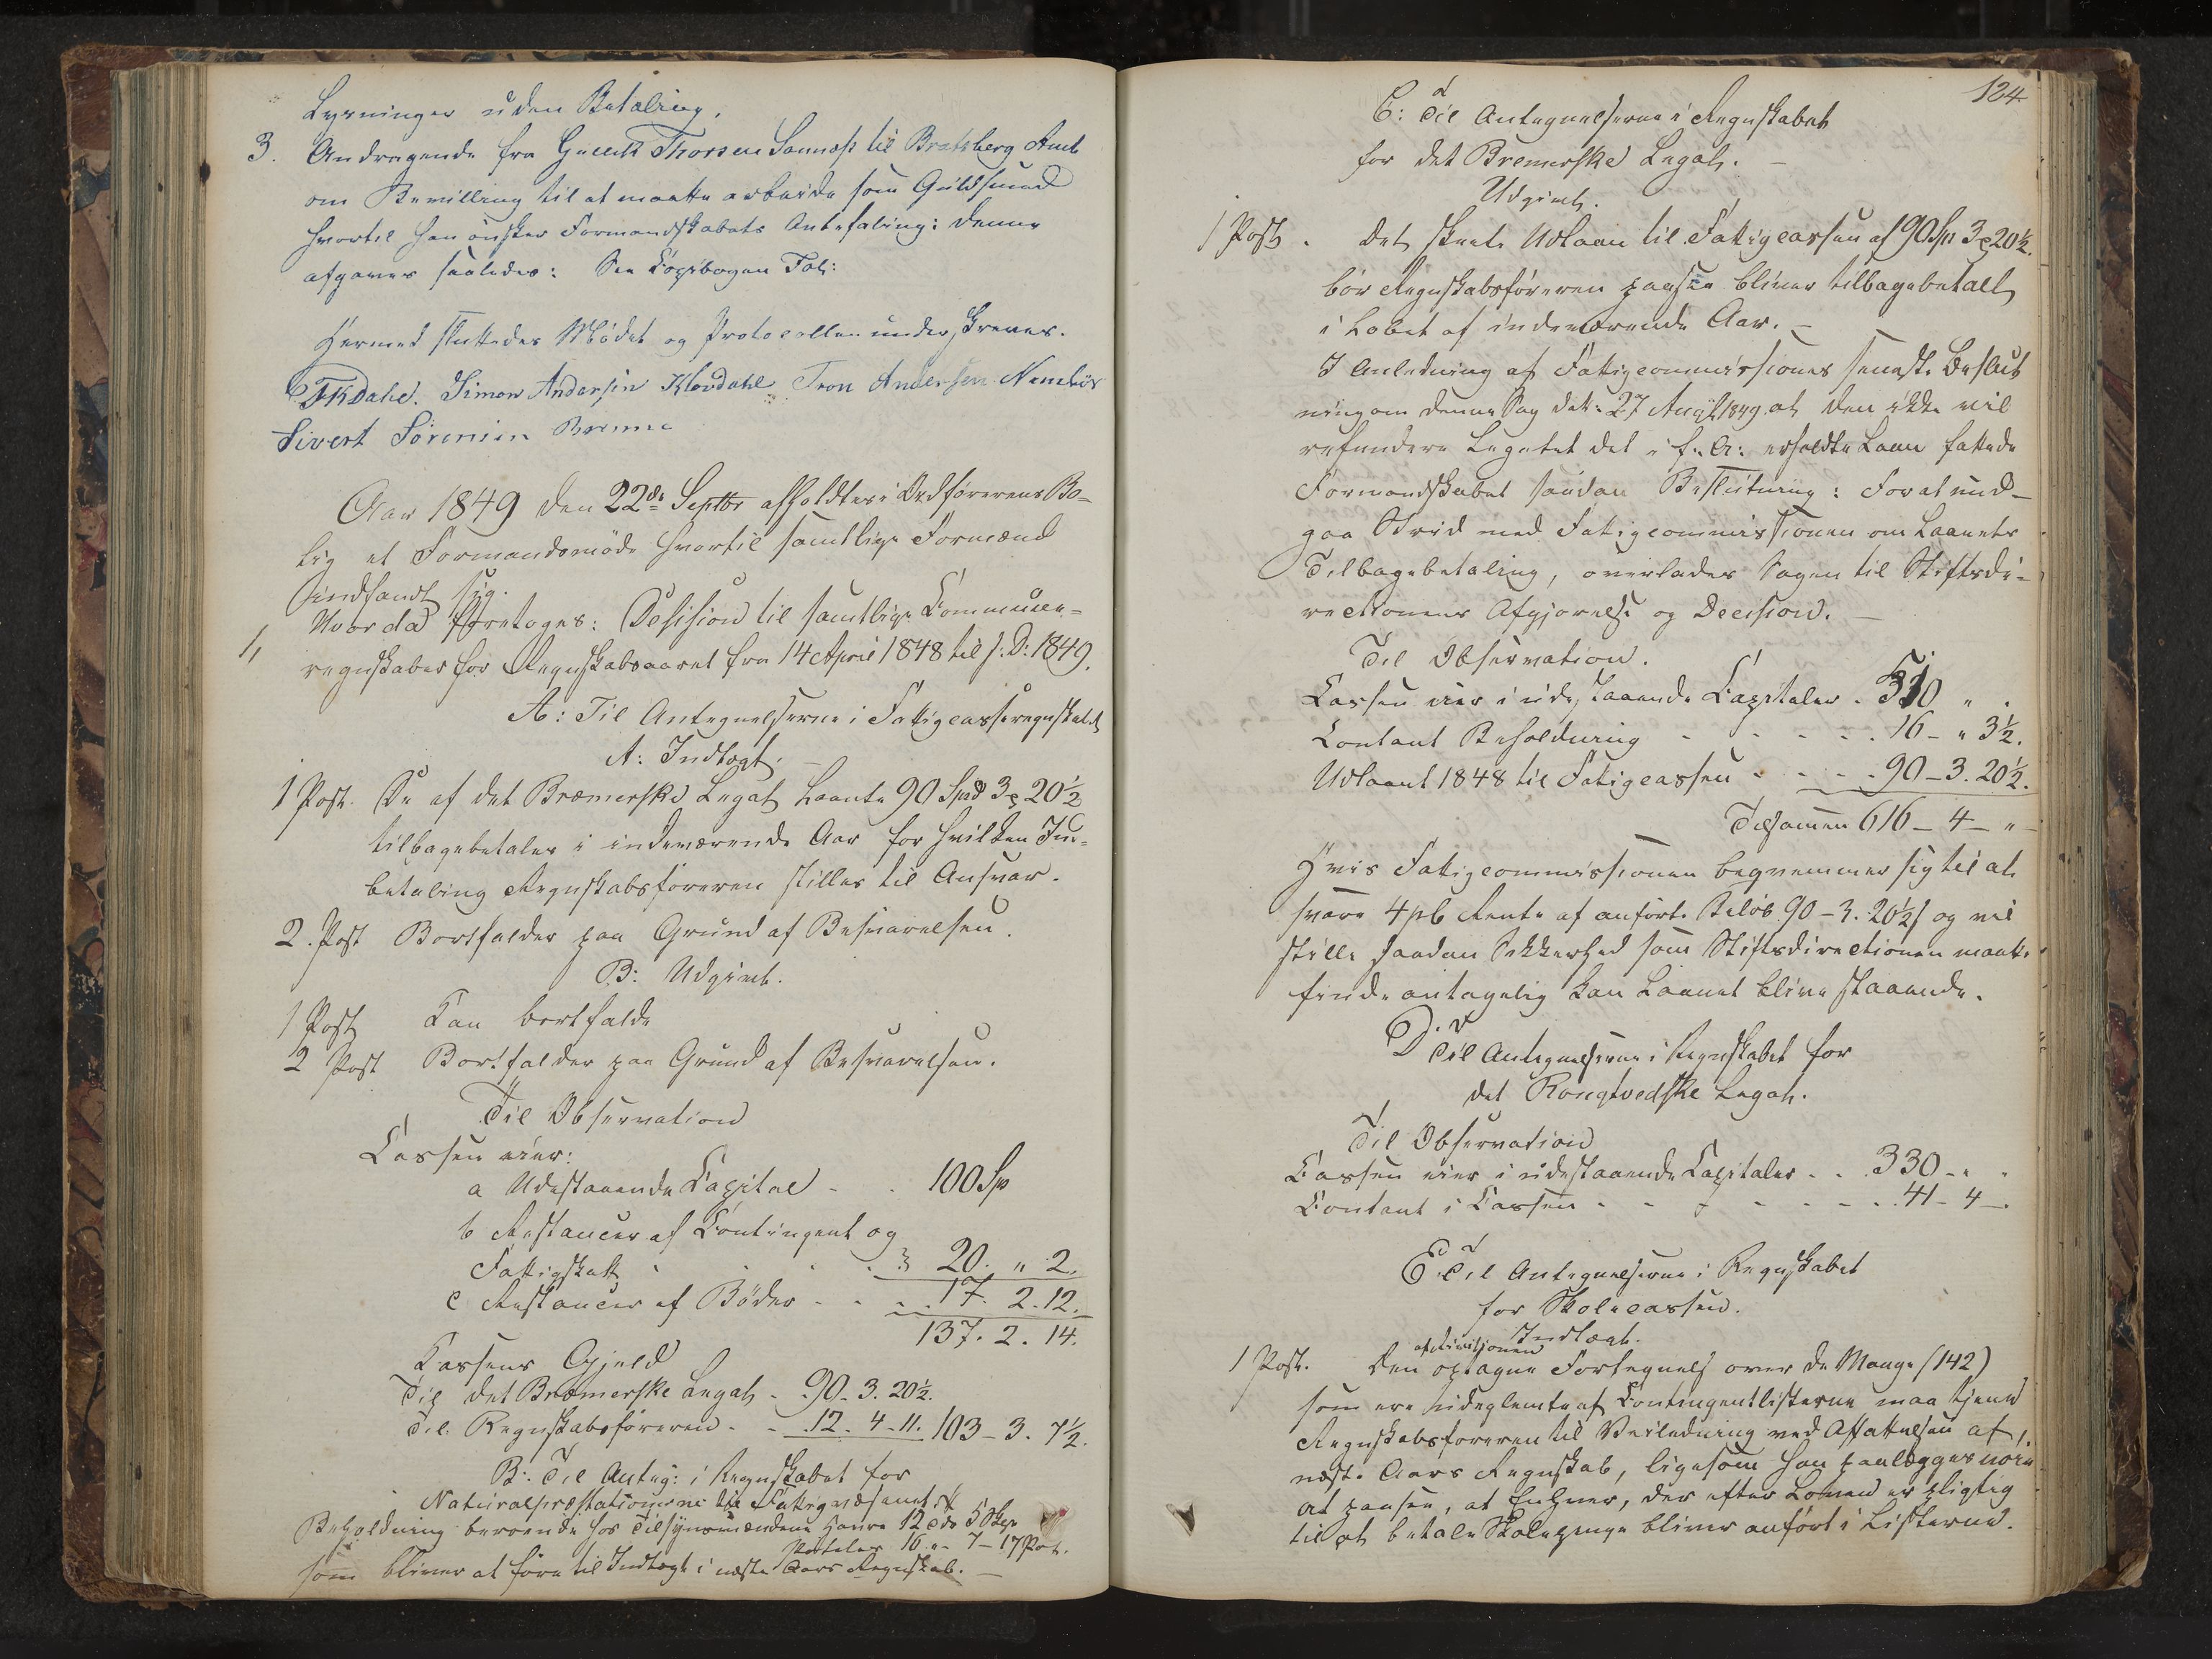 Lysninger uden Betaling.
3. Andragende fra Gullik Thorsen Sannæs til Bratsberg Amt
om Bevilling til at maatte arbeide som Guldsmed
hvortil han ønsker Formandskabets Anbefaling: denne
afgaves saaledes: See Copibogen Fol:
Hermed sluttedes Mødet og Protocollen underskreves.
TKDahl. Simon Andersen Klovdahl Tron Andersen
Sivert Sørensen
Aar 1849 den 22de Septbr afholdtes i Ordførerens Bo-
lig et Formandsmøde hvortil samtlige Formænd
indfandt sig.
1, Hvor da foretoges: Desision til samtlige Commune-
regnskaber for Regnskabsaaret fra 14 April 1848 til s: D: 1849.
A: Til Antegnelserne i Fattigcasseregnskabet
A: Indtægt.
1 Post. De af det Bræmerske Legat laante 90 Spd 3 20½
tilbagebetales i indeværende Aar for hvilken Ind-
betaling Regnskabsføreren stilles til Ansvar.
2. Post Bortfalder paa Grund af Besvarelsen.
B: Udgivt.
1 Post Kan bortfalde
2 Post Bortfalder paa Grund af Besvarelsen.
Til Observation
Cassen eier:
a Udestaaende Capital - 100 Sp
b Restancer af Contingent og
Fattigskatt 20. " 2.
c Restancer af Bøder - - 17. 2. 12.
137. 2. 14.
Cassens Gjeld
Til det Bræmerske Legat - 90. 3. 20½.
Til Regnskabsføreren - - 12. 4. 11. 103 - 3. 7½.
B: Til Anteg: i Regnskabet for
Naturalpræstationerne til Fattigvæsenet
Beholdning beroende hos Tilsynsmændene Havre 12 Tdr 5 Skp
Poteter 16 " - 7 - 17 Pot.
som bliver at føre til Indtægt i næste Aars Regnskab.
124
C: Til Antegnelserne i Regnskabet
for det Bremerske Legat.
Udgivt.
1 Post. Det skeete Udlaan til Fattigcassen af 90 Sp 3 20½.
bør Regnskabsføreren paasee bliver tilbagebetalt
i Løbet af indeværende Aar.
I Anledning af Fatigcommissiones seneste Beslut
ning om denne Sag dat: 27 August 1849 at den ikke vil
refundere Legatet det i f. A: erholdte Laan fattede
Formandskabet saadan Beslutning: For at und-
gaa Strid med Fatigcommissionen om Laanets
Tilbagebetaling, overlades Sagen til Stiftsdi-
rectionens Afgjørelse og Decision.
Til Observation.
Cassen eier i udestaaende Capitaler . 510 " .
Contant Beholdning - - - - 16 - " 3½.
Udlaant 1848 til Fatigcassen - - - 90 - 3. 20½.
Tilsammen 616 - 4 - "
Hvis Fatigcommissionen beqvemmer sig til at
svare 4 pC Rente af anførte Beløb 90 - 3. 20½ og vil
stille saadan Sikkerhed som Stiftsdirectionen maatte
finde antagelig kan Laanet blive staaende.
D. Til Antegnelserne i Regnskabet for
det Rongtvedske Legat.
Til Observation
Cassen eier i udestaaende Capitaler . . 330 - " .
Contant i Cassen - - - - - - 41 - 4 -
E Til Antegnelserne i Regnskabet
for Skolecassen.
Indtægt.
af Revisjonen
1 Post. Den optagne Fortegnels over de Mange (142)
som ere udeglemte af Contingentlisterne maa tjene
Regnskabsføreren til Veiledning ved Affattelsen af
næste Aars Regnskab, ligesom han paalægges nøie
at paasee, at Enhver, der efter Loven er pligtig
til at betale Skolepenge bliver anført i Listerne.